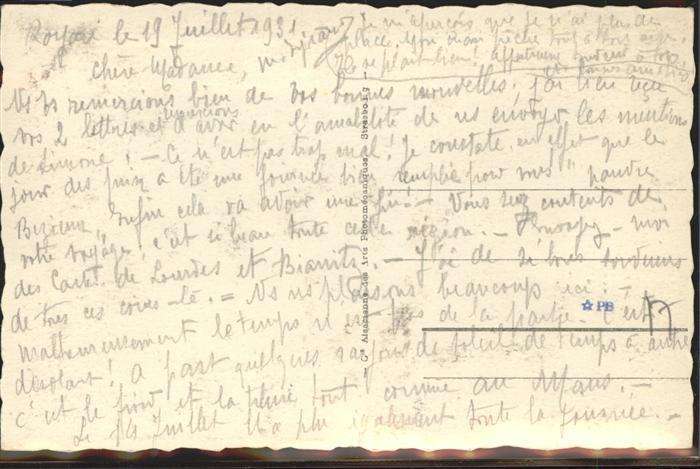 Royan le 19 Juillet 1931
Chère Madame,
Ns vs remercions bien de vos bonnes nouvelles, j'ai bien reçu
vos 2 lettres et remercions d'avoir eu l'amabilité de ns envoyer les mentions
de Simone ! - Ce n'est pas trop mal ! Je constate en effet que le
jour des prix a été une journée bien remplie pour vous "pauvre
Enfin cela va avoir une fin. - Vous serez contents de
votre voyage, c'est si beau toute cette région. - Envoyez-moi
des Cartes de Lourdes et Biarritz. - J'ai de si bons souvenirs
de tous ces coins-là. = Ns ns plaisons beaucoup ici :
malheureusement le temps n'est pas de la partie. C'est
désolant ! à part quelques rayons de soleil de temps à autre
c'est le froid et la pluie tout comme au Mans. -
Le 14 Juillet il a plu également toute la journée. -
Je m'aperçois que je n'ai plus de
place. Mon mari pêche tout à son aise.
Il se plaît bien !
Cie Alsacienne des Arts Photomécaniques, Strasbourg
PB